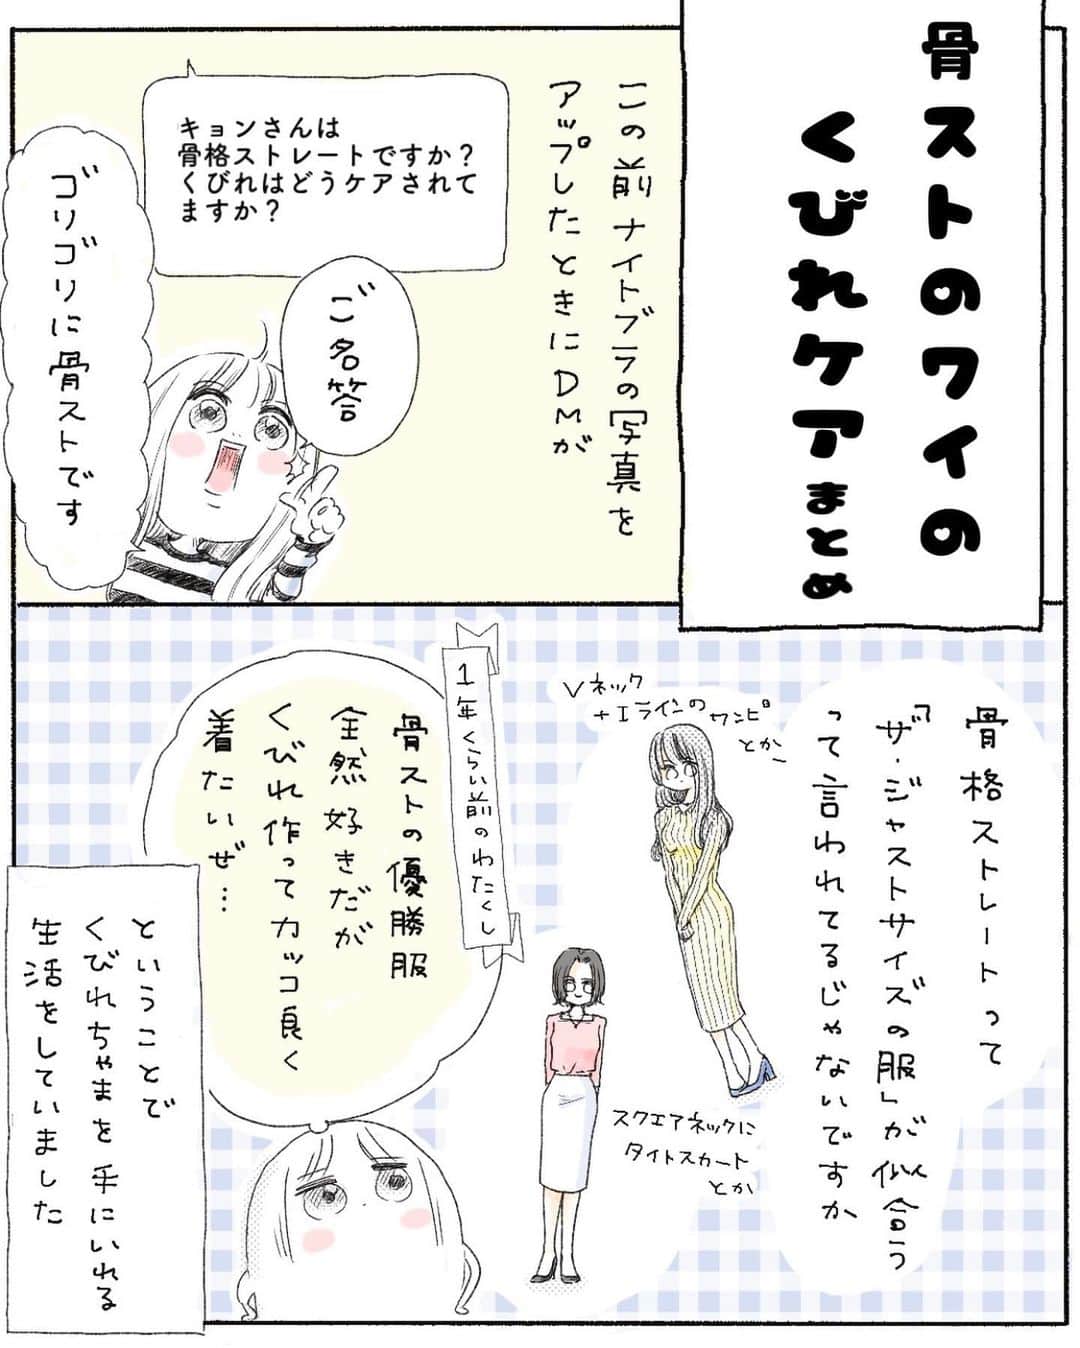 骨ストのワイの
くびれケアまとめ
この前ナイトブラの写真を
アップしたときにDMが
キョンさんは
骨格ストレートですか？
くびれはどうケアされて
ますか？
ご名答
ゴリゴリに骨ストです
骨格ストレートって
「ザ・ジャストサイズの服」が似合う
って言われてるじゃないですか
Vネック
+Iラインのワンピ
とか
スクエアネックに
タイトスカート
とか
1年くらい前のわたくし
骨ストの優勝服
全然好きだが
くびれ作ってカッコ良く
着たいぜ…
ということで
くびれちゃまを手にいれる
生活をしていました